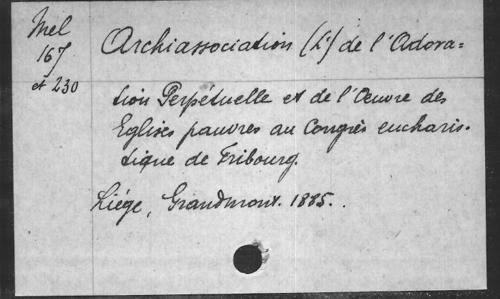 Mel
167
et 230
Archiassociation (L') de l'Adora=
tion Perpétuelle et de l'Œuvre des
Eglises pauvres au Congrès eucharis-
tique de Fribourg.
Liége, Grandmont. 1885.